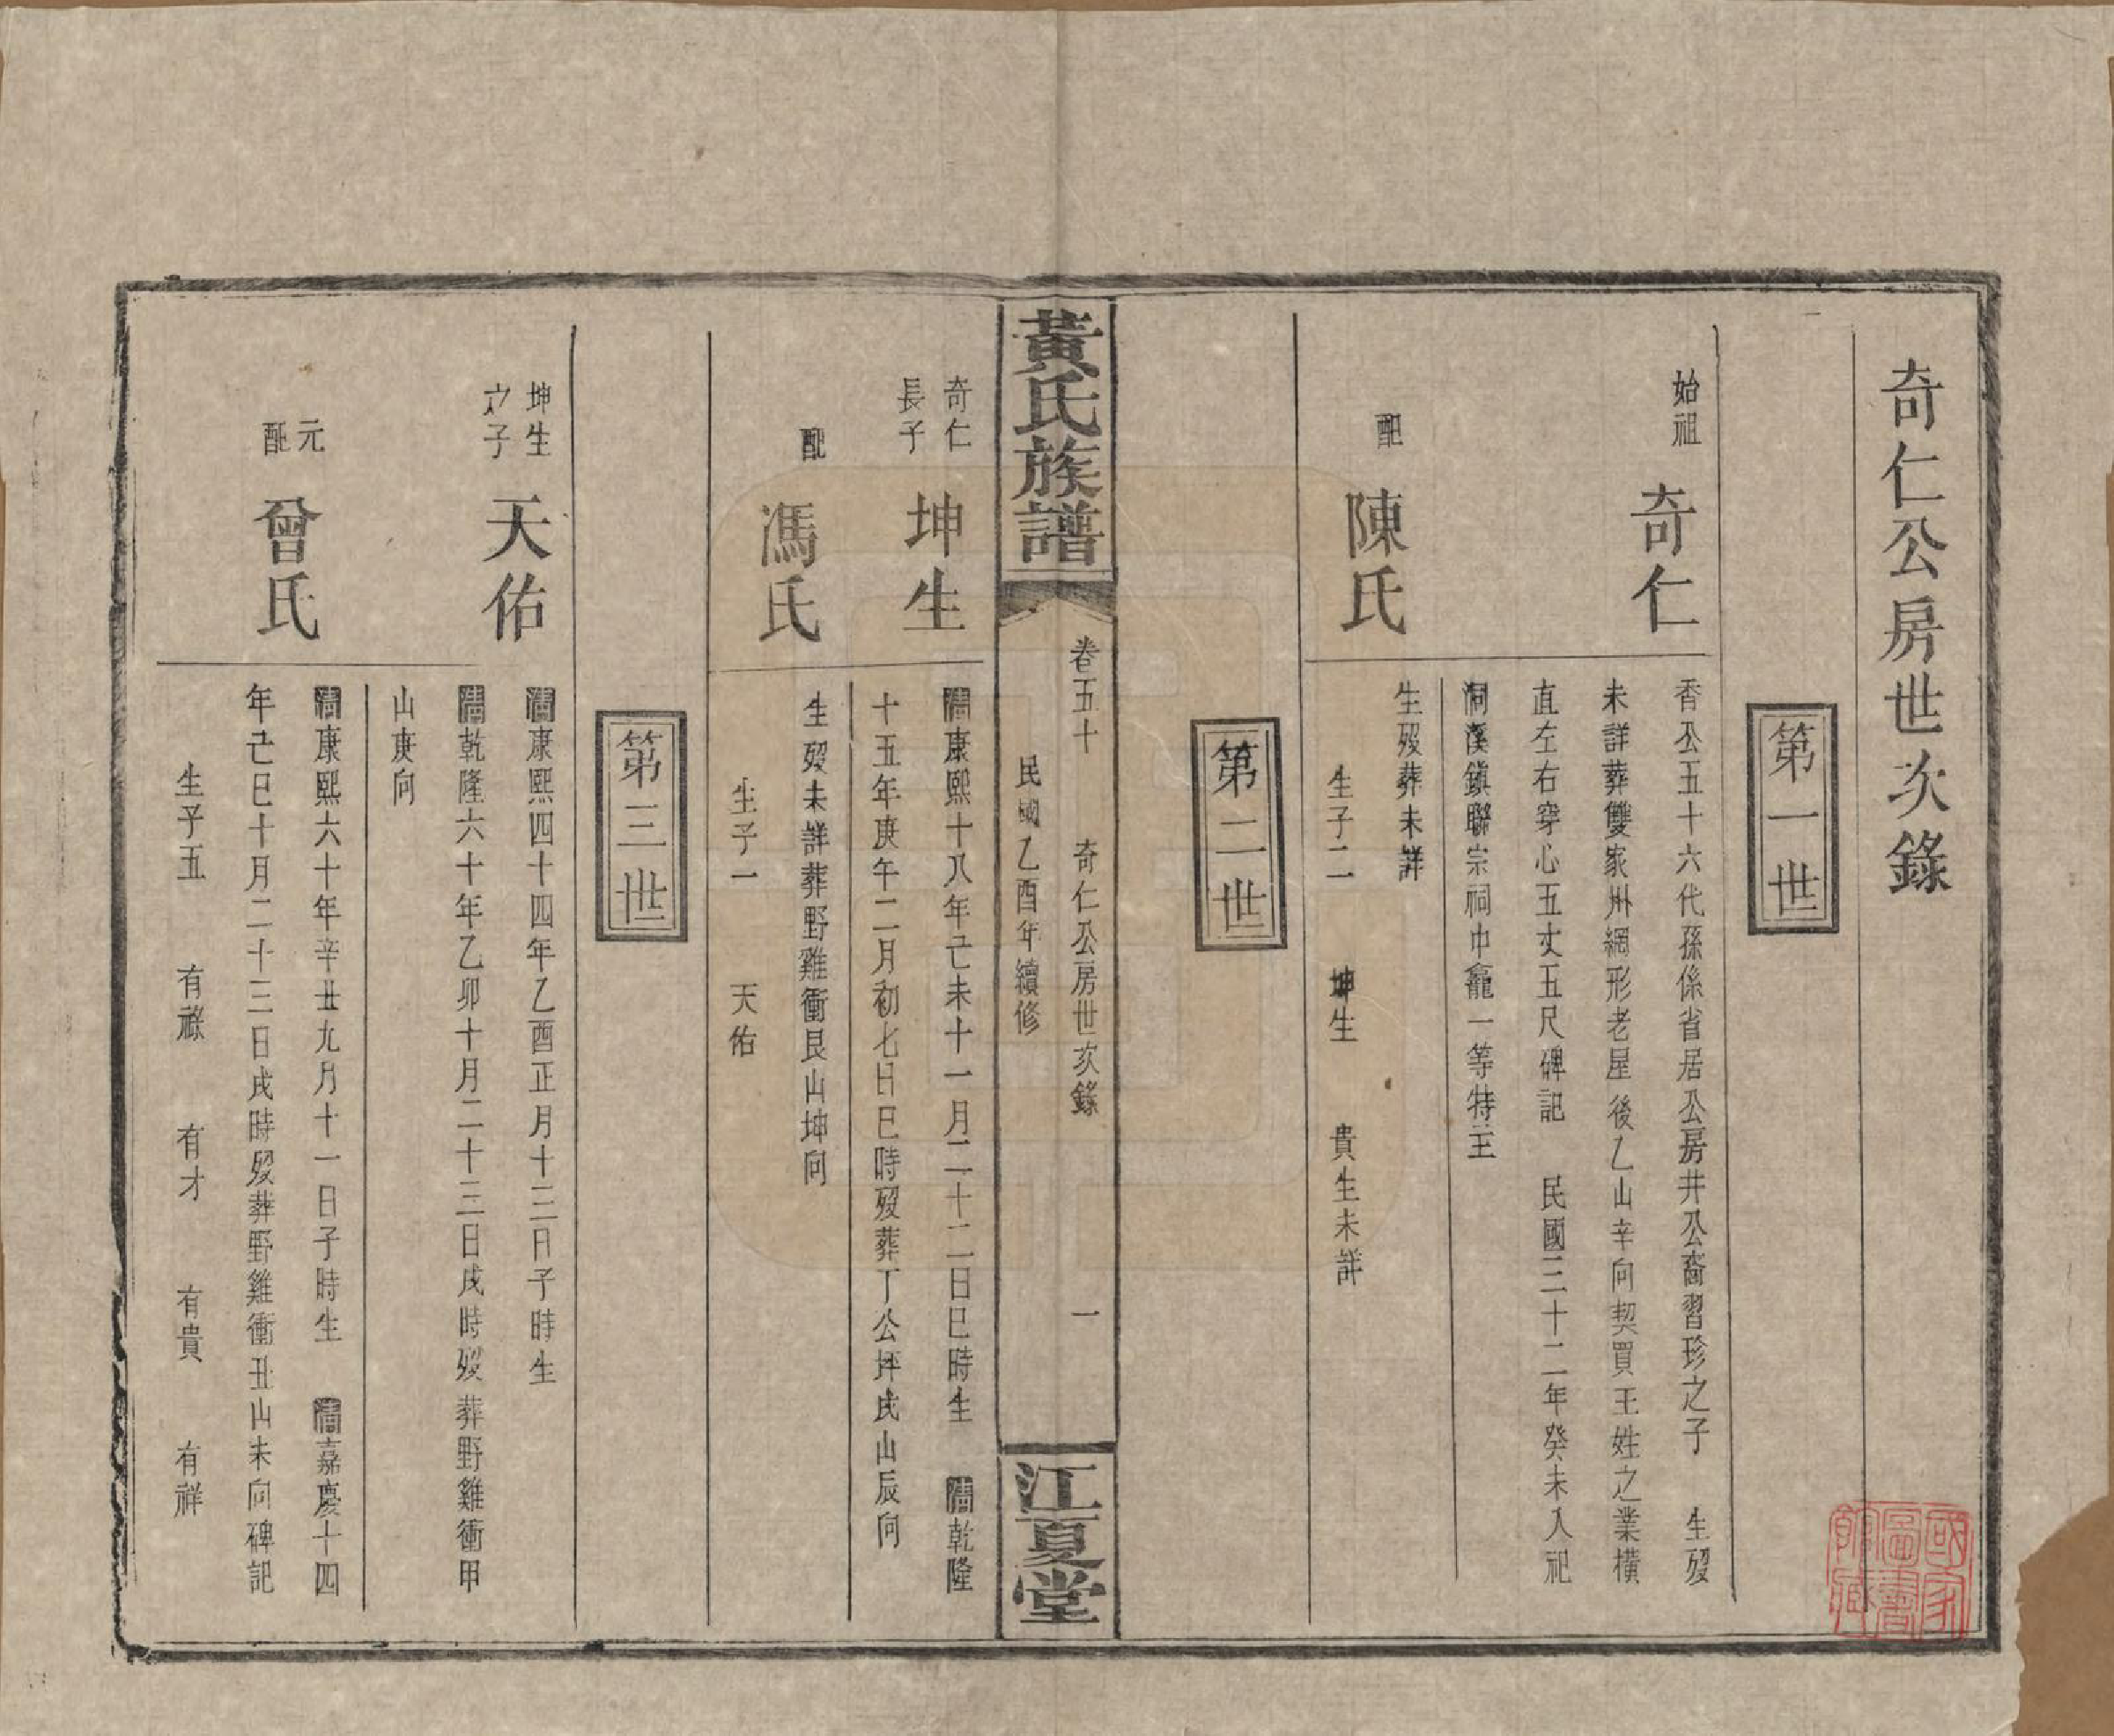 奇仁公房世次錄
第一世
始祖
奇仁
香公五十六代孫係省居公房井公裔習珍之子　生歿
未詳葬雙家州網形老屋後乙山辛向契買王姓之業橫
直左右穿心五丈五尺碑記　民國三十二年癸未入祀
洞溪鎮聯宗祠中龕一等特主
配
陳氏
生歿葬未詳
生子二　坤生　貴生未詳
第二世
黃氏族譜
卷五十　奇仁公房世次錄　一
民國乙酉年續修
江夏堂
奇仁
長子
坤生
清康熙十八年己未十一月二十二日巳時生　清乾隆
十五年庚午二月初七日巳時歿葬丁公坪戌山辰向
配
馮氏
生歿未詳葬野雞衝艮山坤向
生子一　天佑
第三世
坤生
之子
天佑
清康熙四十四年乙酉正月十三日子時生
清乾隆六十年乙卯十月二十三日戌時歿葬野雞衝甲
山庚向
元
配
曾氏
清康熙六十年辛丑九月十一日子時生　清嘉慶十四
年己巳十月二十三日戌時歿葬野雞衝丑山未向碑記
生子五　有祿　有才　有貴　有祥
國家圖書館藏